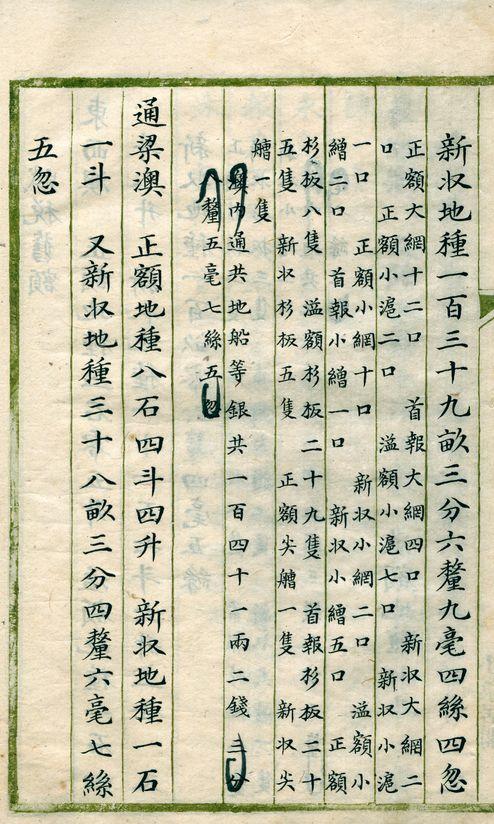 新収地種一百三十九畝三分六釐九毫四絲四忽
正額大網十二口 首報大網四口 新収大網二
口 正額小滬二口 溢額小滬七口 新収小滬
一口 正額小網十口 新収小網二口 溢額小
繒二口 首報小繒一口 新収小繒五口 正額
杉板八隻 溢額杉板二十九隻 首報杉板二十
五隻 新収杉板五隻 正額尖艚一隻 新収尖
艚一隻
澳內通共地船等銀共一百四十一兩二錢三分
八釐五毫七絲五忽
通梁澳 正額地種八石四斗四升 新収地種一石
一斗 又新収地種三十八畝三分四釐六毫七絲
五忽